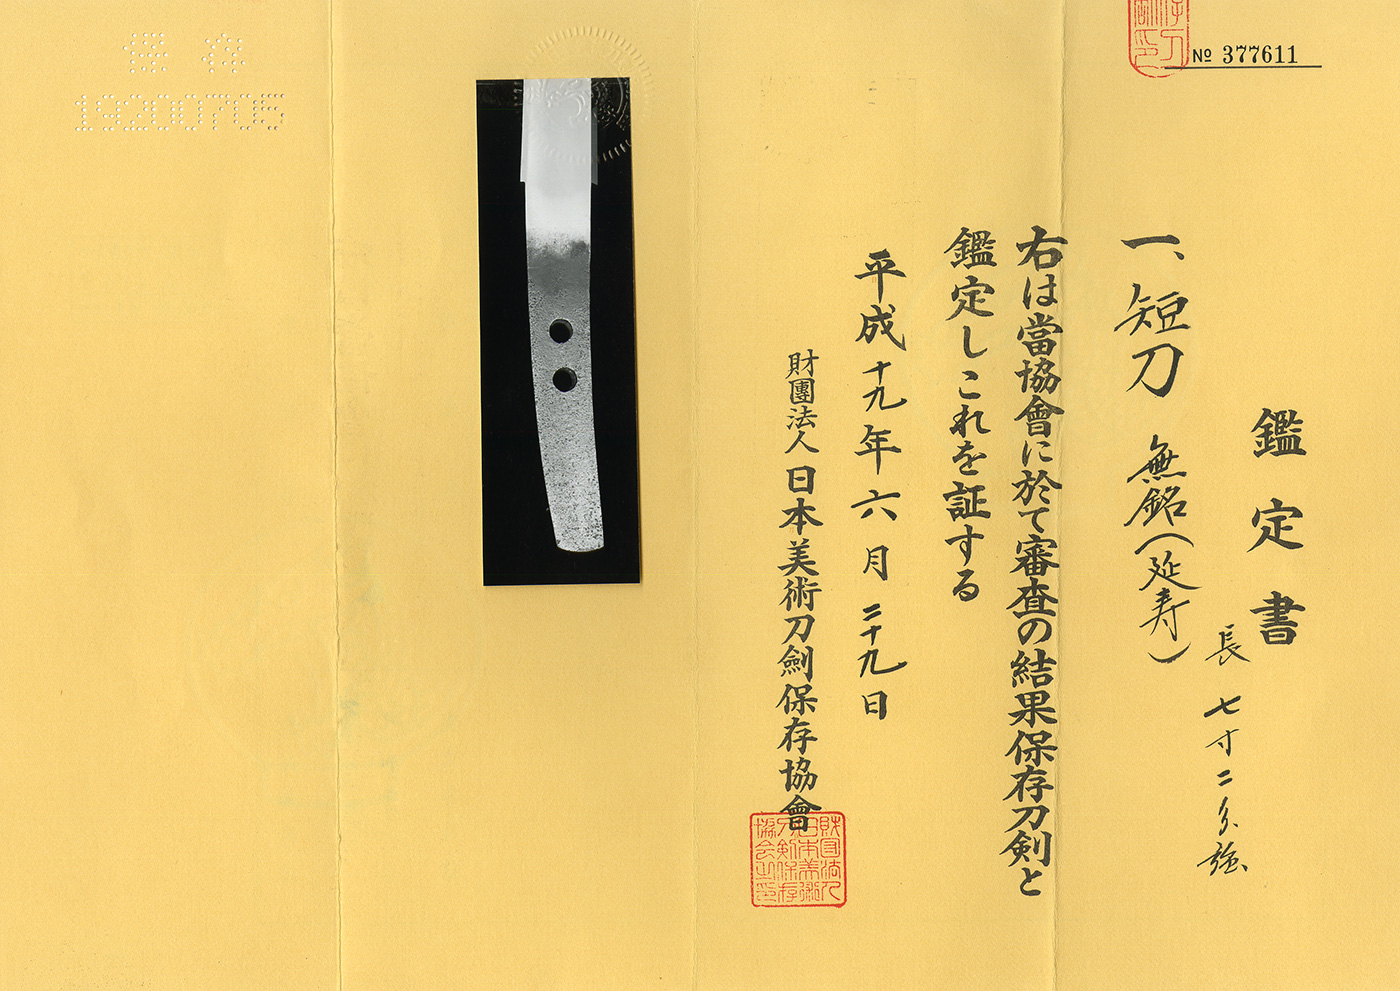 № 377611
鑑定書
一、短刀 無銘(延寿)
長 七寸二分強
右は當協會に於て審査の結果保存刀剣と
鑑定しこれを証する
平成十九年六月二十九日
財團法人日本美術刀劍保存協會
財団法人
日本美術
刀剣保存
協会之印
保存
19200705